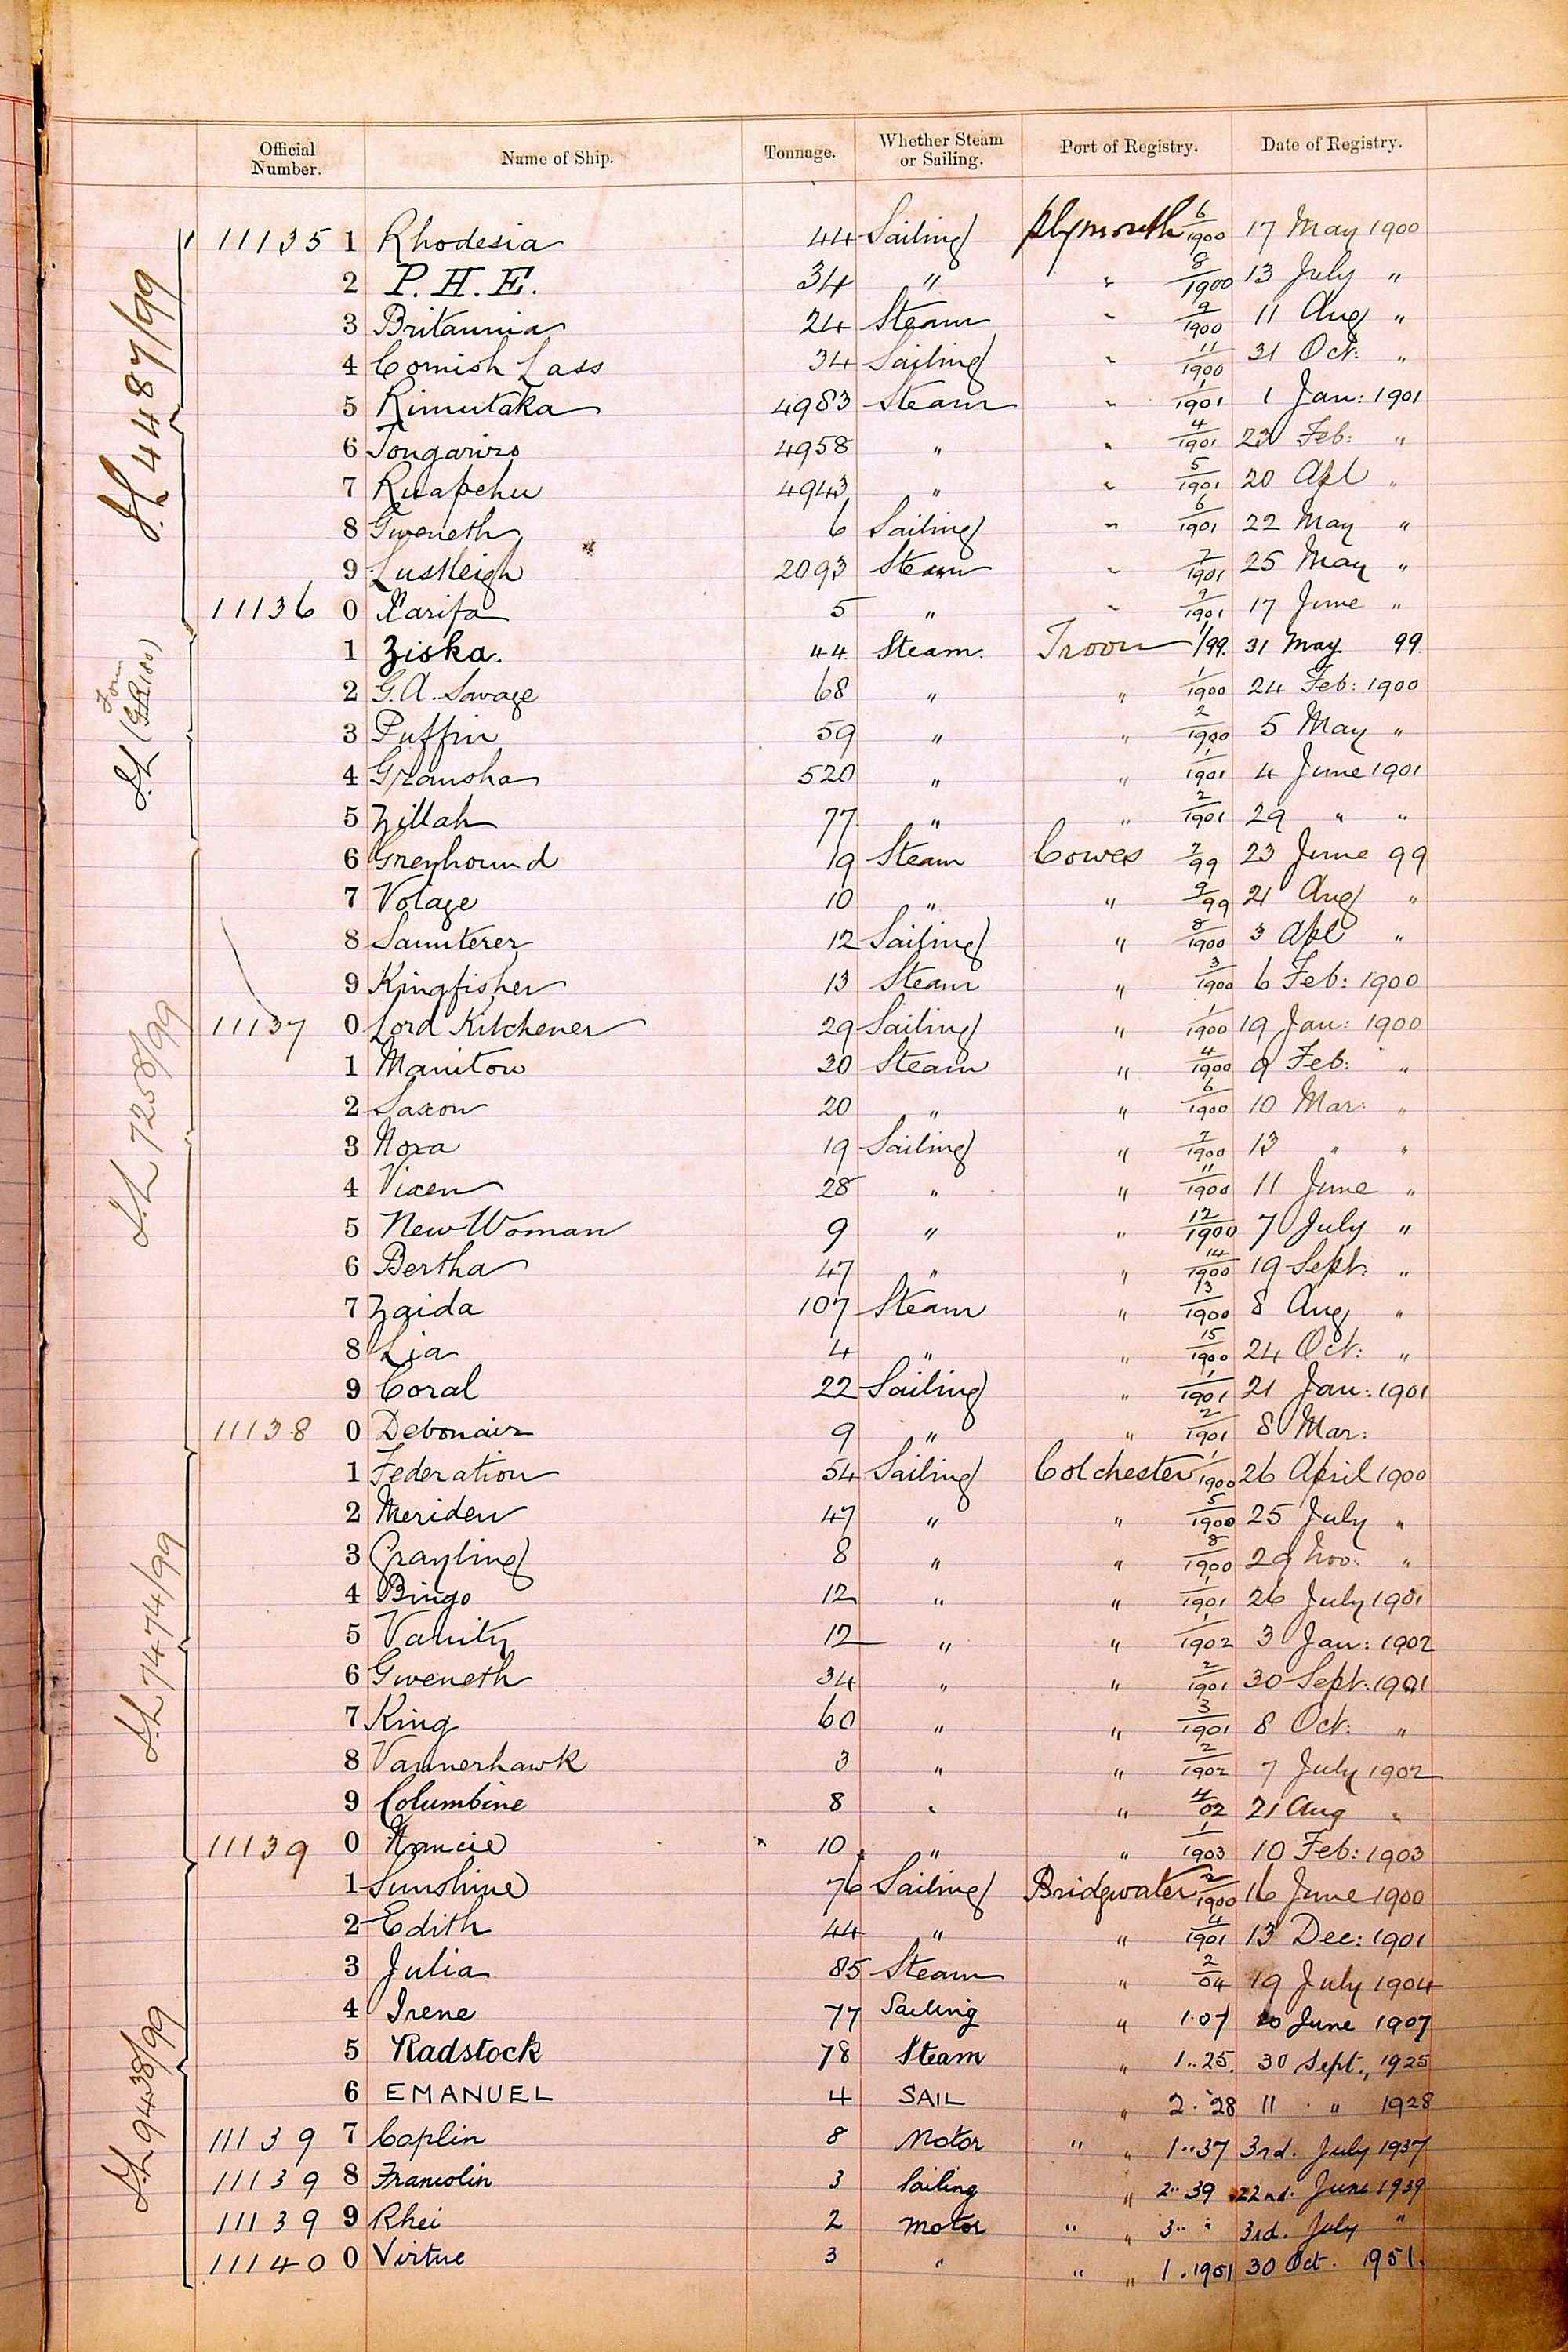 Official Number. Name of Ship. Tonnage. Whether Steam or Sailing. Port of Registry. Date of Registry.
11135 1 Rhodesia 44 Sailing Plymouth 6/1900 17 May 1900
2 P.H.E. 34 " " 8/1900 13 July "
3 Britannia 24 Steam " 9/1900 11 Aug "
4 Cornish Lass 34 Sailing " 11/1900 31 Oct: "
5 Rimutaka 4983 Steam " 1/1901 1 Jan: 1901
6 Tongariro 4958 " " 4/1901 23 Feb: "
7 Ruapehu 4943 " " 5/1901 20 Apl "
8 Gweneth 6 Sailing " 6/1901 22 May "
9 Lustleigh 2093 Steam " 7/1901 25 May "
11136 0 Xarifa 5 " " 9/1901 17 June "
1 Ziska. 44 Steam. Troon 1/99. 31 May 99.
2 G.A. Savage 68 " " 1/1900 24 Feb: 1900
3 Puffin 59 " " 2/1900 5 May "
4 Gransha 520 " " 1/1901 4 June 1901
5 Zillah 77 " " 2/1901 29 " "
6 Greyhound 19 Steam Cowes 7/99 23 June 99
7 Volage 10 " " 9/99 21 Aug "
8 Saunterer 12 Sailing " 8/1900 3 Apl "
9 Kingfisher 13 Steam " 3/1900 6 Feb: 1900
11137 0 Lord Kitchener 29 Sailing " 1/1900 19 Jan: 1900
1 Manitou 30 Steam " 4/1900 9 Feb: "
2 Saxon 20 " " 6/1900 10 Mar: "
3 Noxa 19 Sailing " 7/1900 13 " "
4 Vixen 28 " " 11/1900 11 June "
5 New Woman 9 " " 12/1900 7 July "
6 Bertha 47 " " 14/1900 19 Sept: "
7 Zaida 107 Steam " 13/1900 8 Aug "
8 Lia 4 " " 15/1900 24 Oct: "
9 Coral 22 Sailing " 1/1901 21 Jan: 1901
11138 0 Debonair 9 " " 2/1901 8 Mar:
1 Federation 54 Sailing Colchester 1/1900 26 April 1900
2 Meriden 47 " " 5/1900 25 July "
3 Grayling 8 " " 8/1900 29 Nov: "
4 Bingo 12 " " 1/1901 26 July 1901
5 Vanity 12 " " 1/1902 3 Jan: 1902
6 Gweneth 34 " " 2/1901 30 Sept: 1901
7 King 60 " " 3/1901 8 Oct: "
8 Vannerhawk 3 " " 2/1902 7 July 1902
9 Columbine 8 " " 4/02 21 Aug "
11139 0 Nancie 10 " " 1/1903 10 Feb: 1903
1 Sunshine 76 Sailing Bridgwater 2/1900 16 June 1900
2 Edith 44 " " 4/1901 13 Dec: 1901
3 Julia 85 Steam " 2/04 19 July 1904
4 Irene 77 Sailing " 1.07 June 1907
5 Radstock 78 Steam " 1..25. 30 Sept., 1925
6 EMANUEL 4 SAIL " 2.28 11 " 1928
11139 7 Coplin 8 Motor " " 1..37 3rd. July 1937
11139 8 Francolin 3 Sailing " 2..39 22nd. June 1939
11139 9 Rhei 2 Motor " " 3.. " 3rd. July "
11140 0 Virtue 3 " " " 1.1951 30 Oct. 1951.
4487/99
Form
7258/99
7474/99
9438/99